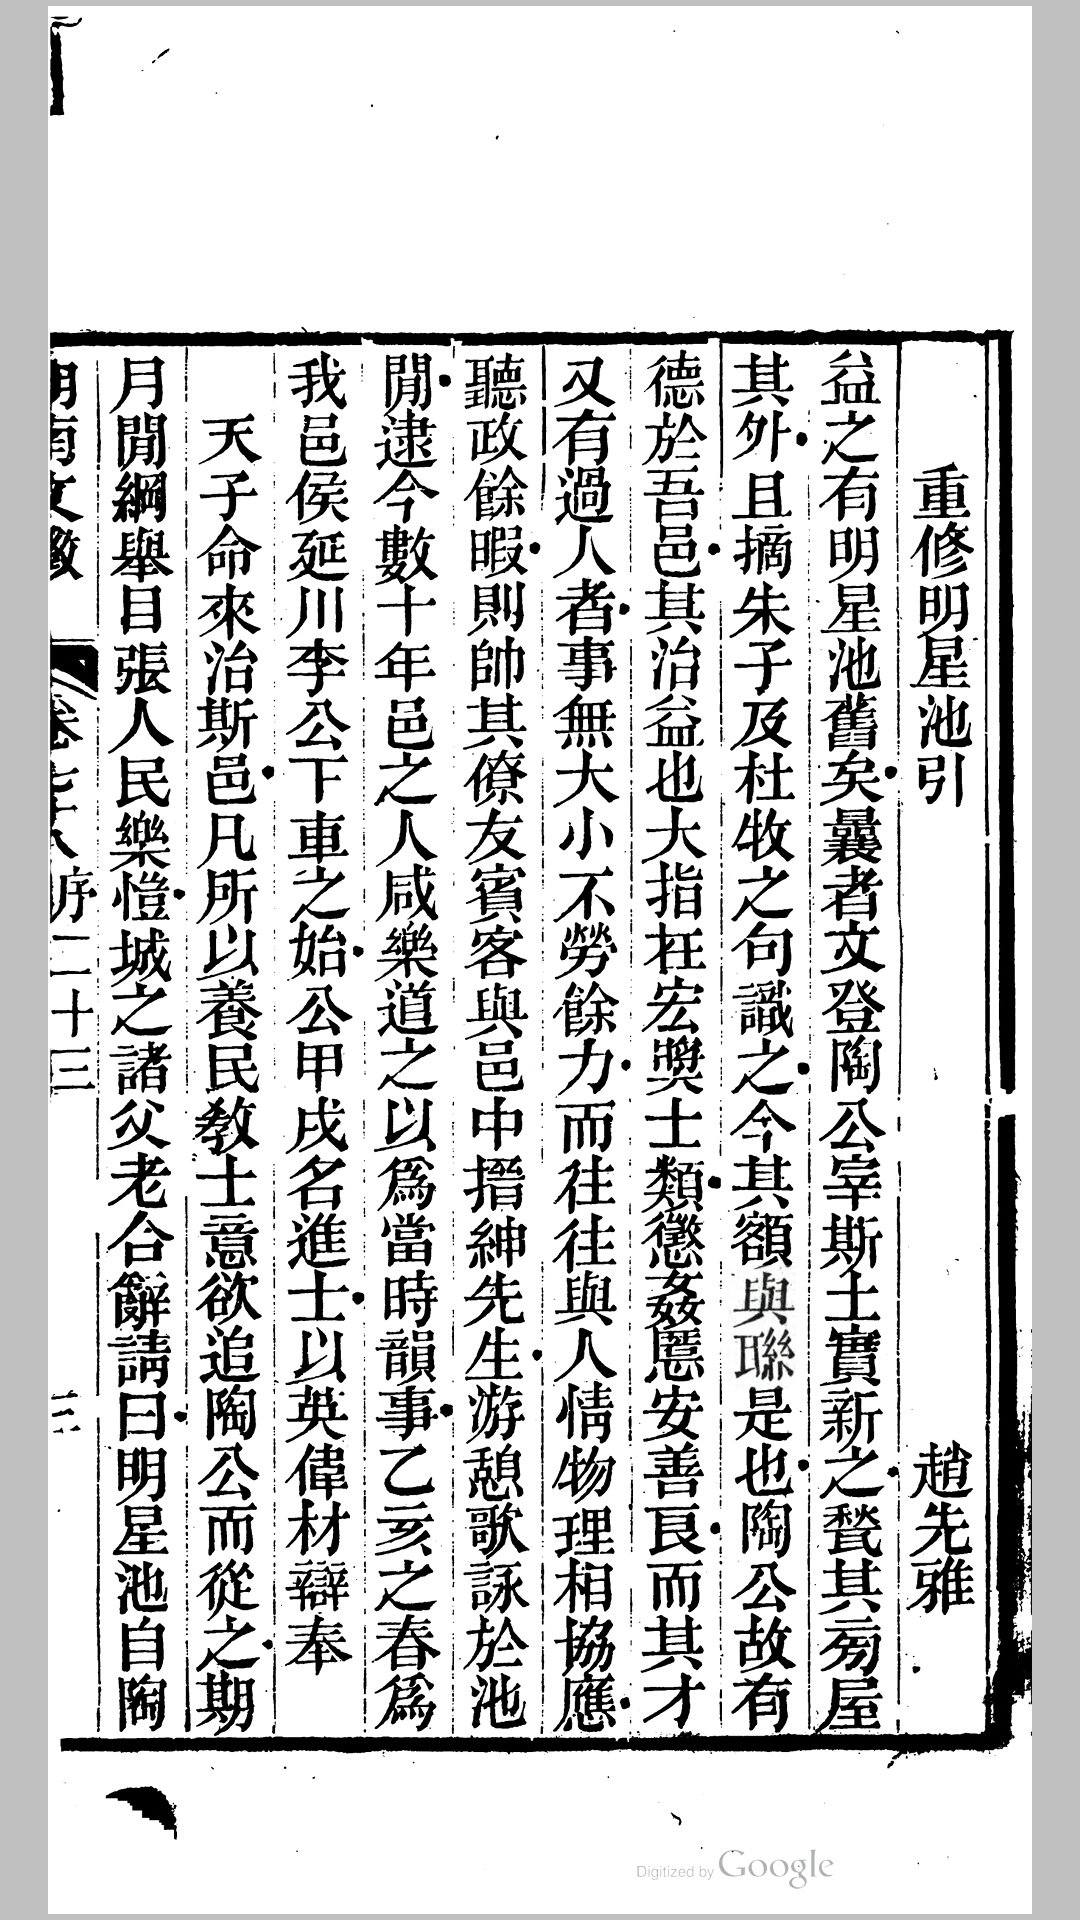 重修明星池引　趙先雅
益之有明星池舊矣曩者文登陶公宰斯土實新之甃其旁屋
其外且摘朱子及杜牧之句識之今其額與聯是也陶公故有
德於吾邑其治益也大指在宏奬士類懲姦慝安善良而其才
又有過人者事無大小不勞餘力而往往與人情物理相協應
聽政餘暇則帥其僚友賓客與邑中搢紳先生游憩歌詠於池
閒逮今數十年邑之人咸樂道之以爲當時韻事乙亥之春爲
我邑侯延川李公下車之始公甲戌名進士以英偉材辯奉
天子命來治斯邑凡所以養民教士意欲追陶公而從之期
月閒綱舉目張人民樂愷城之諸父老合辭請曰明星池自陶
湖南文徵　卷七十八　序二十三
Digitized by Google